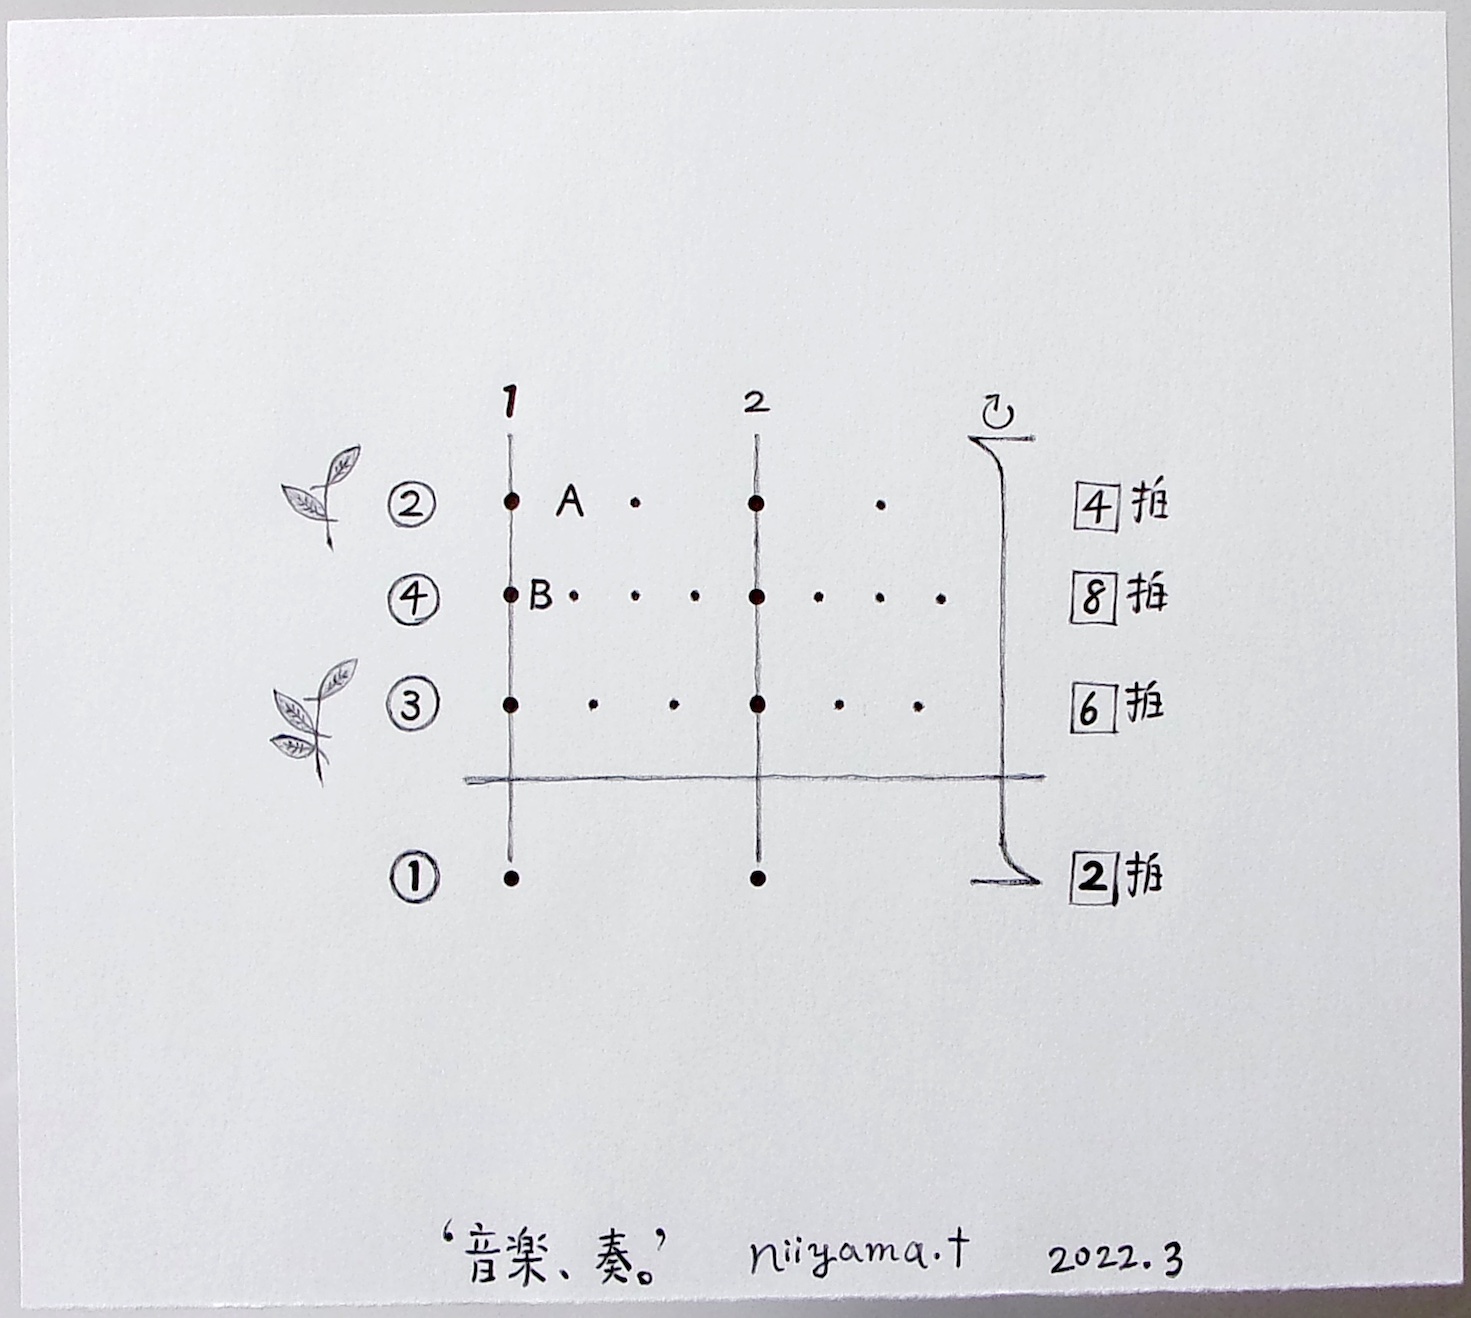 1 2 ↻
② A 4拍
④ B 8拍
③ 6拍
① 2拍
‘音楽、奏。’ niiyama.t 2022.3